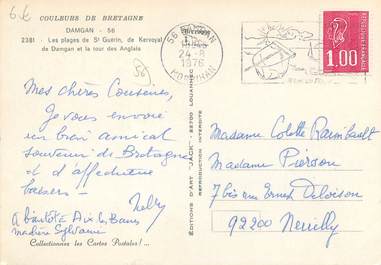 6€
COULEURS DE BRETAGNE
DAMGAN - 56
2381 - Les plages de St Guérin, de Kervoyal
de Damgan et la tour des Anglais
56
Mes chères Cousines,
Je vous envoie
un bon amical
souvenir de Bretagne
et d'affectueux
baisers -
Nelly
A bientôt à Aix les Bains
Madère Sylvanie
Collectionnez les Cartes Postales !...
ÉDITIONS D'ART "JACK" - 22700 LOUANNEC
REPRODUCTION INTERDITE
56 DAMGAN
24-8
1976
MORBIHAN
1,00
Madame Colette Raimbault
Madame Pierson
7 bis rue Ernest Deloison
92200 Neuilly